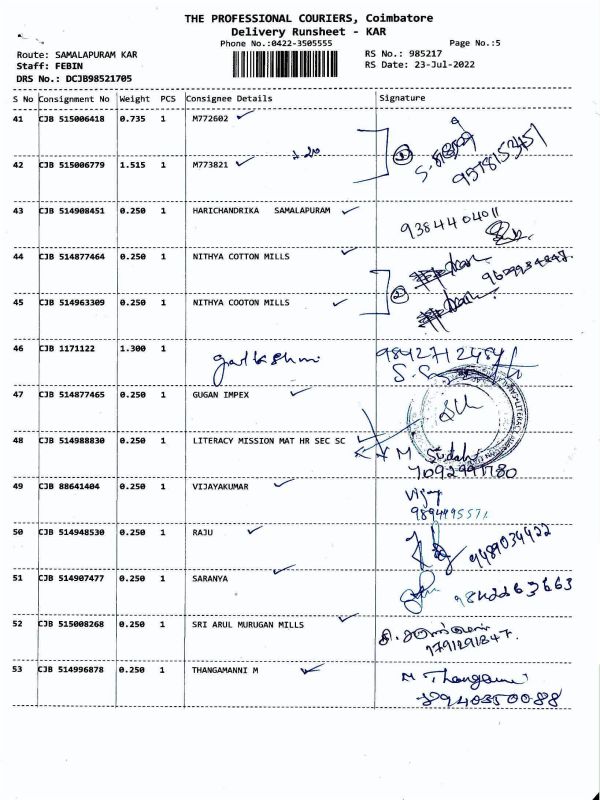 THE PROFESSIONAL COURIERS, Coimbatore
Delivery Runsheet - KAR
Phone No.:0422-3505555
Page No.:5
Route: SAMALAPURAM KAR
RS No.: 985217
Staff: FEBIN
RS Date: 23-Jul-2022
DRS No.: DCJB98521705
S No Consignment No Weight PCS Consignee Details Signature
41 CJB 515006418 0.735 1 M772602
42 CJB 515006779 1.515 1 M773821
9578153451
43 CJB 514908451 0.250 1 HARICHANDRIKA SAMALAPURAM
9384404011
44 CJB 514877464 0.250 1 NITHYA COTTON MILLS
45 CJB 514963309 0.250 1 NITHYA COOTON MILLS
46 CJB 1171122 1.300 1
47 CJB 514877465 0.250 1 GUGAN IMPEX
48 CJB 514988830 0.250 1 LITERACY MISSION MAT HR SEC SC
49 CJB 88641404 0.250 1 VIJAYAKUMAR
Vijay
50 CJB 514948530 0.250 1 RAJU
9489034422
51 CJB 514907477 0.250 1 SARANYA
9842263663
52 CJB 515008268 0.250 1 SRI ARUL MURUGAN MILLS
53 CJB 514996878 0.250 1 THANGAMANNI M
8940350088